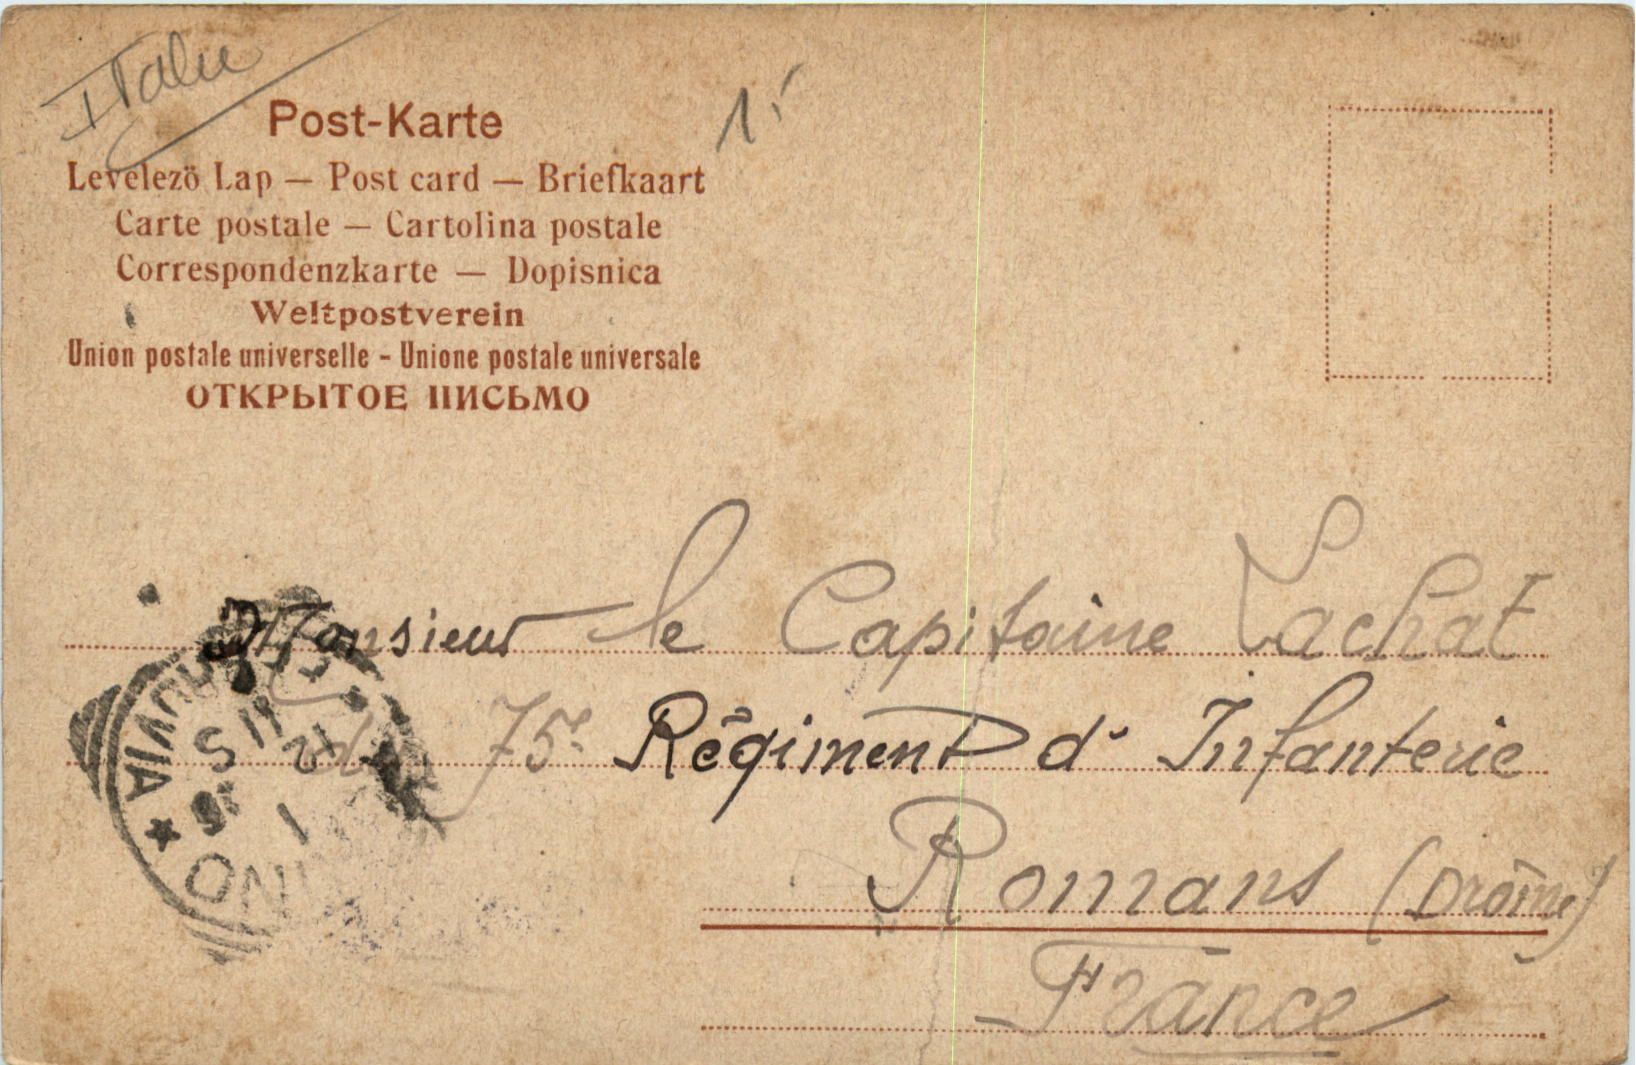 Italie
Post-Karte
1,-
Levelezö Lap — Post card — Briefkaart
Carte postale — Cartolina postale
Correspondenzkarte — Dopisnica
Weltpostverein
Union postale universelle - Unione postale universale
ОТКРЫТОЕ ПИСЬМО
Monsieur le Capitaine Lachat
du 75e Régiment d' Infanterie
Romans (Drôme)
France